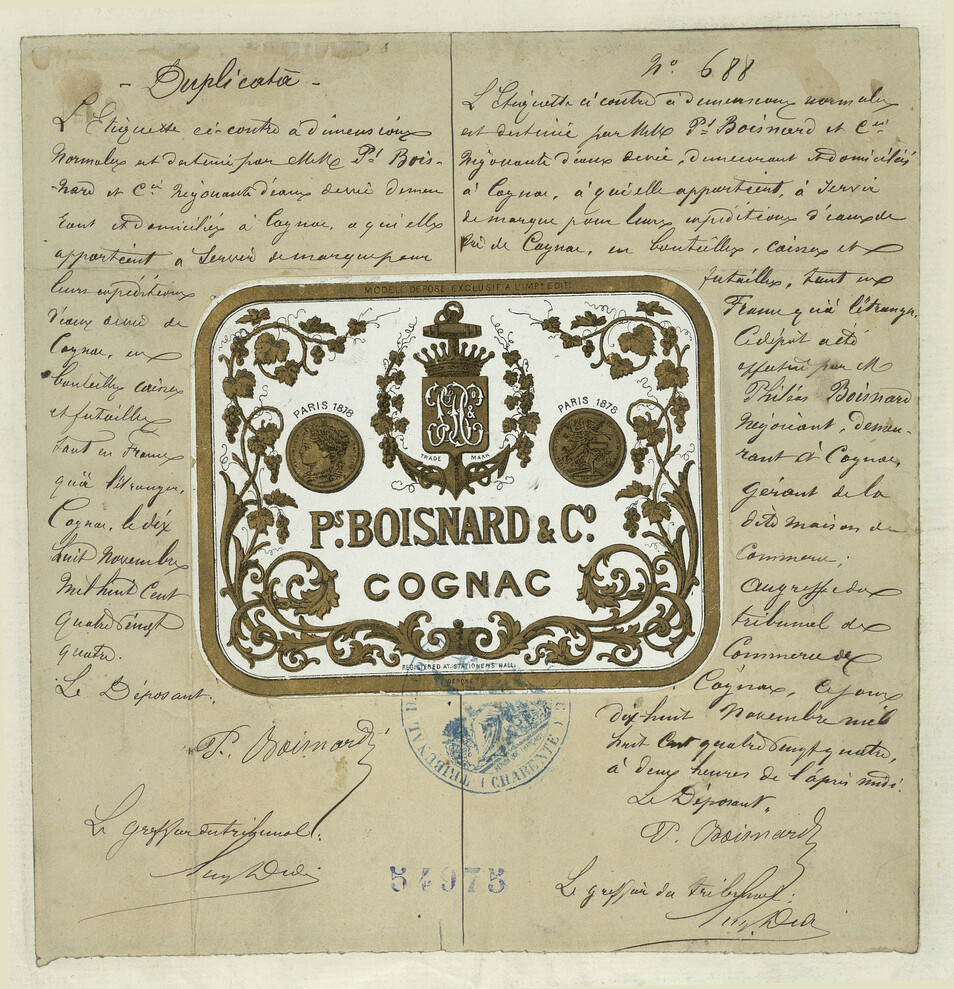 - Duplicata -
L'Etiquette ci-contre à dimensions
normales est destinée par MM Pd Bois-
-nard et Cie Négociants d'eaux de vie demeu
rant et domiciliés à Cognac, a qui elle
appartient a Servir de marque pour
leurs expéditions
d'eaux de vie de
Cognac, en
bouteilles caisses
et futailles
tant en France
qu'à l'étranger,
Cognac, le dix
huit Novembre
Mil huit Cent
quatre vingt
quatre.
Le Déposant.
P. Boisnard
Le greffier du tribunal.
No 688
L'Etiquette ci contre à dimensions normales
est destinée par MM Pd Boisnard et Cie
Négociants d'eaux de vie, demeurant et domiciliés
à Cognac, à qui elle appartient, à Servir
de marque pour leurs expéditions d'eaux de
vie de Cognac, en bouteilles, caisses et
futailles, tant en
France qu'à l'étranger.
Ce dépôt a été
effectué par M
Philéas Boisnard
Négociant, demeu-
rant à Cognac,
gérant de la
dite maison de
Commerce;
au greffe du
tribunal de
Commerce de
Cognac, ce jour
dix-huit Novembre mil
huit Cent quatre vingt quatre,
à deux heures de l'après midi.
Le Déposant,
P. Boisnard
Le greffier du Tribunal:
MODÈLE DÉPOSÉ EXCLUSIF A L'IMPR EDITR
PARIS 1878
PARIS 1878
TRADE MARK
Ps. BOISNARD & Co.
COGNAC
REGISTERED AT STATIONERS HALL
DÉPOSÉ
TRIBUNAL DE
(CHARENTE)
54975